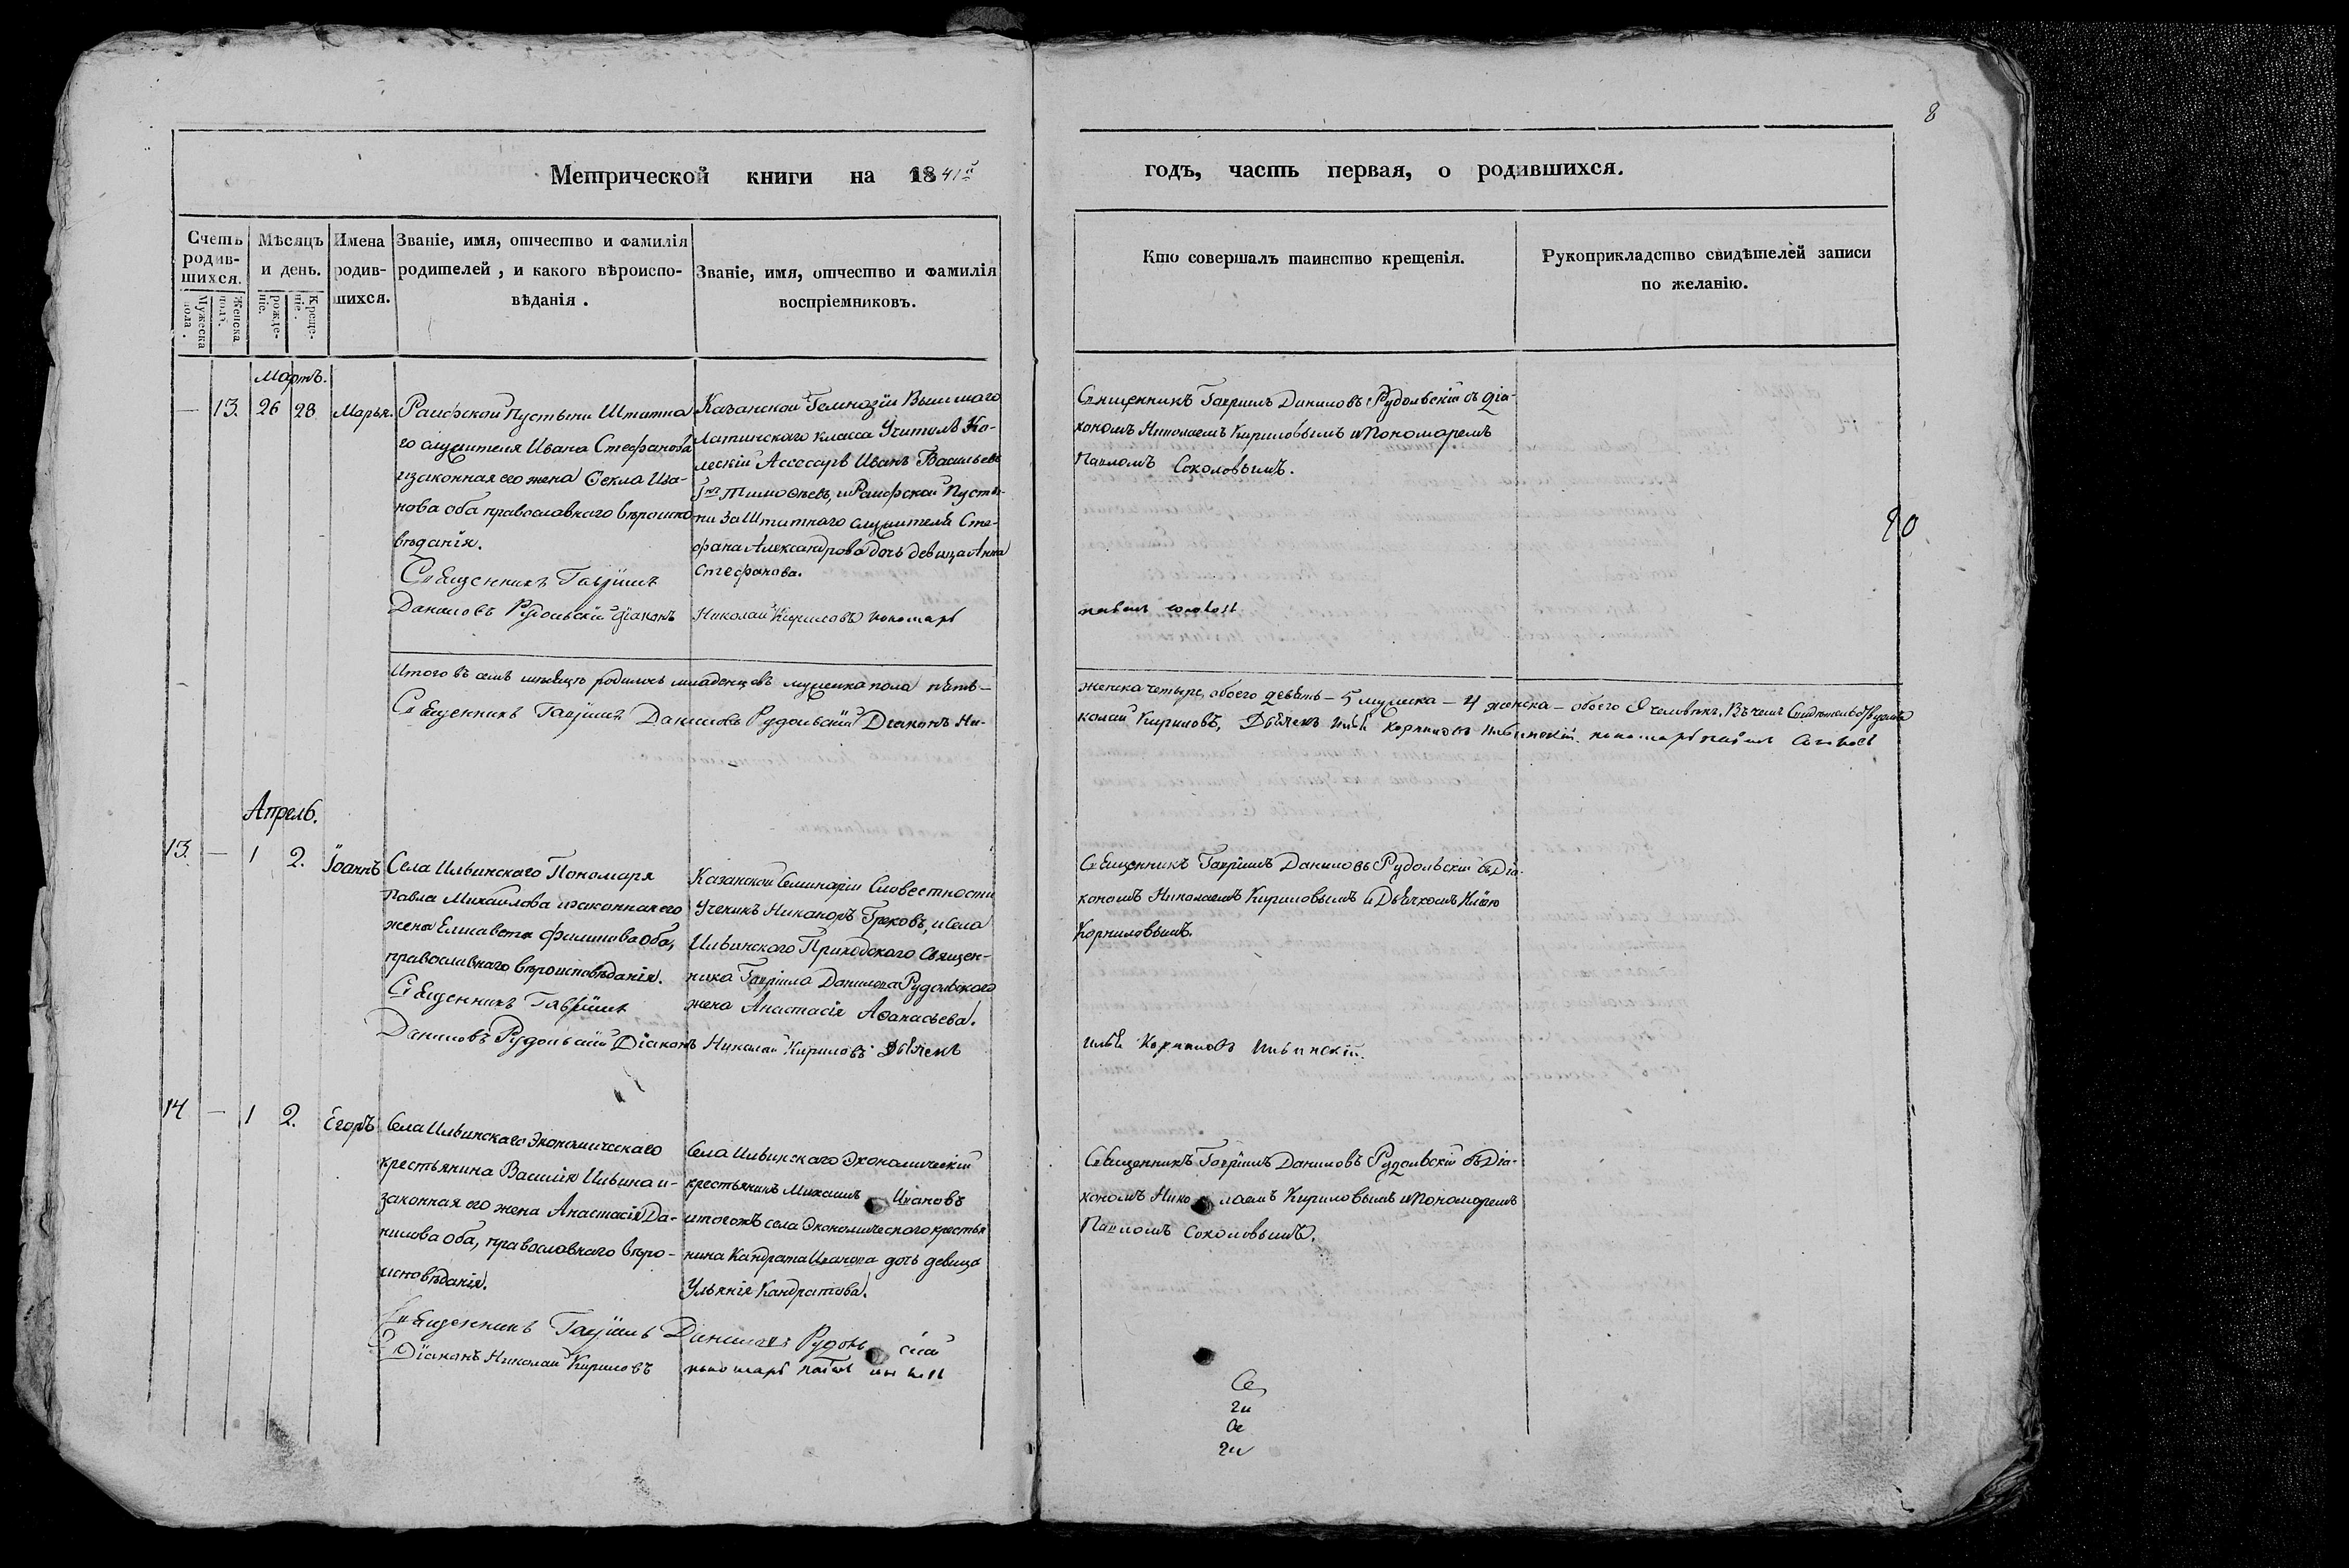 8
Метрической книги на 1841й
годъ, часть первая, о родившихся.
Счетъ родив-шихся.
Мужеска пола.
Женска пола.
Мѣсяцъ и день.
рожде-ніе.
Креще-ніе.
Имена родив-шихся.
Званіе, имя, отчество и фамилія
родителей, и какого вѣроиспо-
вѣданія.
Званіе, имя, отчество и фамилія
воспріемниковъ.
Кто совершалъ таинство крещенія.
Рукоприкладство свидѣтелей записи
по желанію.
Мартъ.
— 13. 26 28 Марья.
Раифской Пустыни Штатна
го служителя Ивана Стефанова
изаконная его жена Фекла Ива-
нова оба православнаго вѣроиспо
вѣданія.
Священникъ Гавріилъ
Даниловъ Рудольскій Діаконъ
Казанской Гемназіи Вышшаго
Латинскаго класса Учитель Ко-
лескій Ассесаръ Иванъ Васильевъ
Тимофѣевъ, и Раифской Пусты-
ни заштатнаго служителя Сте-
фана Александрова дочь девица Анна
Стефанова.
Николай Кириловъ пономарь
Священникъ Гавріилъ Даниловъ Рудольскій съ Діа-
кономъ Николаемъ Кириловымъ и Пономаремъ
Павломъ Соколовымъ.
80
павелъ соколов
Итого въ семъ мѣсяцѣ родилось младенцовъ мужеска пола пять—
женска четыре, обоего девѣть — 5 мужска — 4 женска — обоего 9 человѣкъ. Въ чемъ
Священникъ Гавріилъ Даниловъ Рудольскій Діаконъ Ни-
колай Кириловъ, Дьячекъ Илья Корниловъ Ильинскій. пономарь павелъ Соколов
Апрель.
13. — 1 2. Іоаннъ
Села Ильинскаго Пономаря
Павла Михайлова изаконная его
жена Елисавета Филипова оба,
православнаго вѣроисповѣданія.
Священникъ Гавріилъ
Даниловъ Рудольскій Діаконъ
Казанской Семинаріи Словестности
Ученикъ Никаноръ Грековъ, и села
Ильинскаго Приходскаго Священ-
ника Гавріила Данилова Рудольскаго
жена Анастасія Афанасьева.
Николай Кириловъ Дьячекъ
Священникъ Гавріилъ Даниловъ Рудольскій съ Діа-
кономъ Николаемъ Кириловымъ и Дьячкомъ Ильею
Корниловымъ.
илья Корниловъ Ильинскій.
14 — 1 2. Егоръ
Села Ильинскаго Экономическаго
крестьянина Василія Ильина и-
законная его жена Анастасія Да-
нилова оба, православнаго вѣро-
исповѣданія.
Священникъ Гавріилъ Даниловъ Рудольскій
Діаконъ Николай Кириловъ
Села Ильинскаго Экономическій
крестьянинъ Михаилъ Ивановъ
итогожъ села Экономическаго крестья
нина Кандрата Иванова дочь девица
Ульянія Кандратова.
пономарь павелъ
Священникъ Гавріилъ Даниловъ Рудольскій съ Діа-
кономъ Николаемъ Кириловымъ и Пономаремъ
Павломъ Соколовымъ.